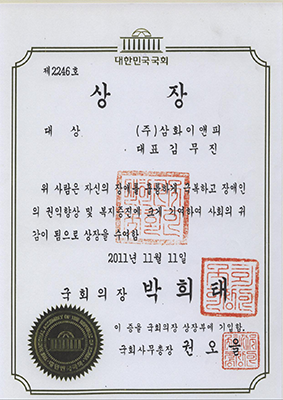 대한민국국회
제2246호
상 장
대 상 (주)삼화이앤피
대표 김무진
위 사람은 자신의 장애를 훌륭하게 극복하고 장애인
의 권익향상 및 복지증진에 크게 기여하여 사회의 귀
감이 됨으로 상장을 수여함
2011년 11월 11일
국회의장 박희태
이 증을 국회의장 상장부에 기입함.
국회사무총장 권오을